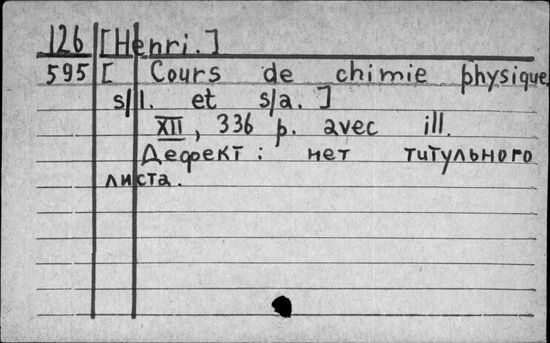 126 [Henri.]
595 [ Cours de chimie physique
s/l. et s/a. ]
XII, 336 p. avec ill.
Дефект: нет титульного
листа.